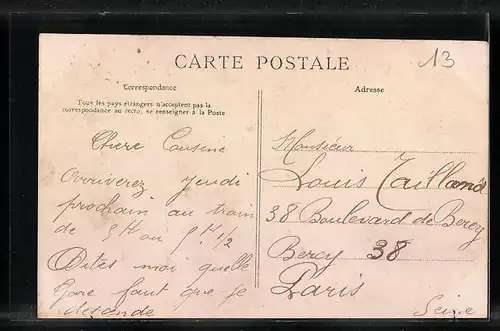 13
CARTE POSTALE
Correspondance
Tous les pays étrangers n'acceptent pas la
correspondance au recto, se renseigner à la Poste
Chere Cousine
Arriverez jeudi
prochain au train
de 8H ou 8H 1/2
Dites moi quelle
Gare faut que je
desende
Adresse
Monsieur
Louis Tailland
38 Boulevard de Bercy
Bercy 38
Paris
Seine